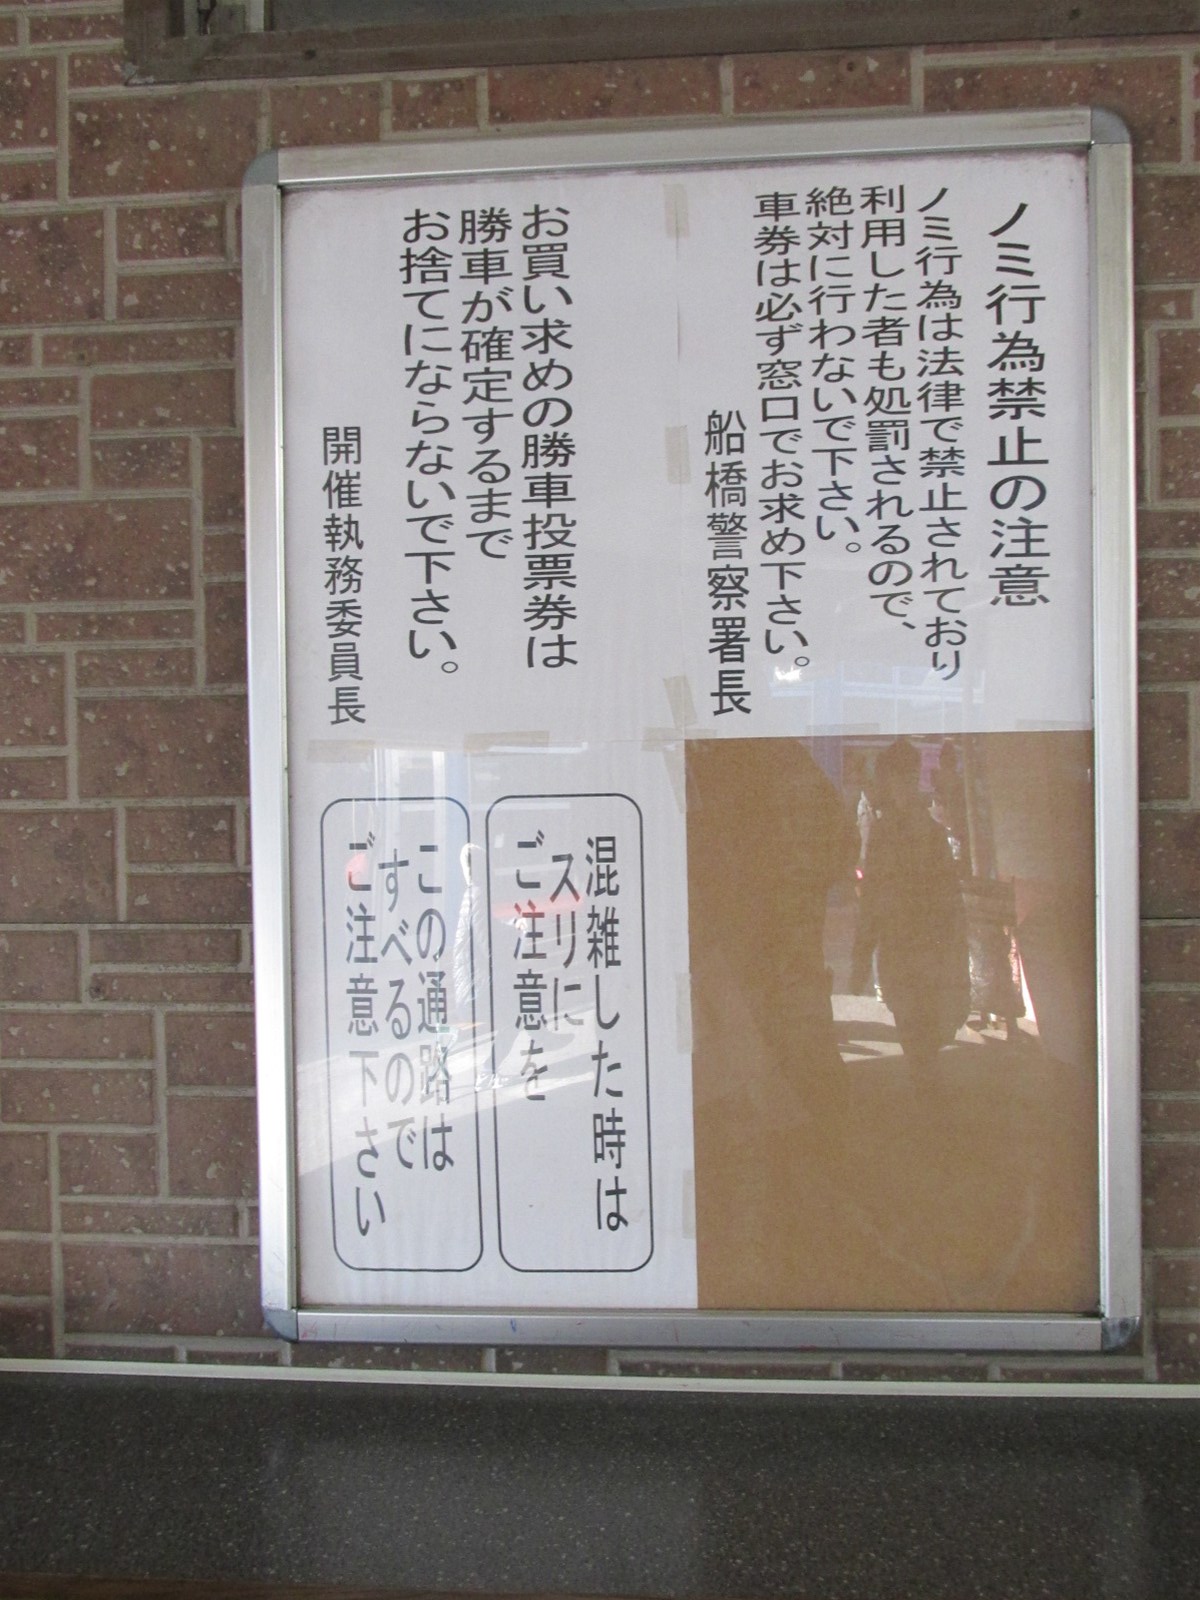 ノミ行為禁止の注意
ノミ行為は法律で禁止されており
利用した者も処罰されるので、
絶対に行わないで下さい。
車券は必ず窓口でお求め下さい。
船橋警察署長
お買い求めの勝車投票券は
勝車が確定するまで
お捨てにならないで下さい。
開催執務委員長
混雑した時は
スリに
ご注意を
この通路は
すべるので
ご注意下さい